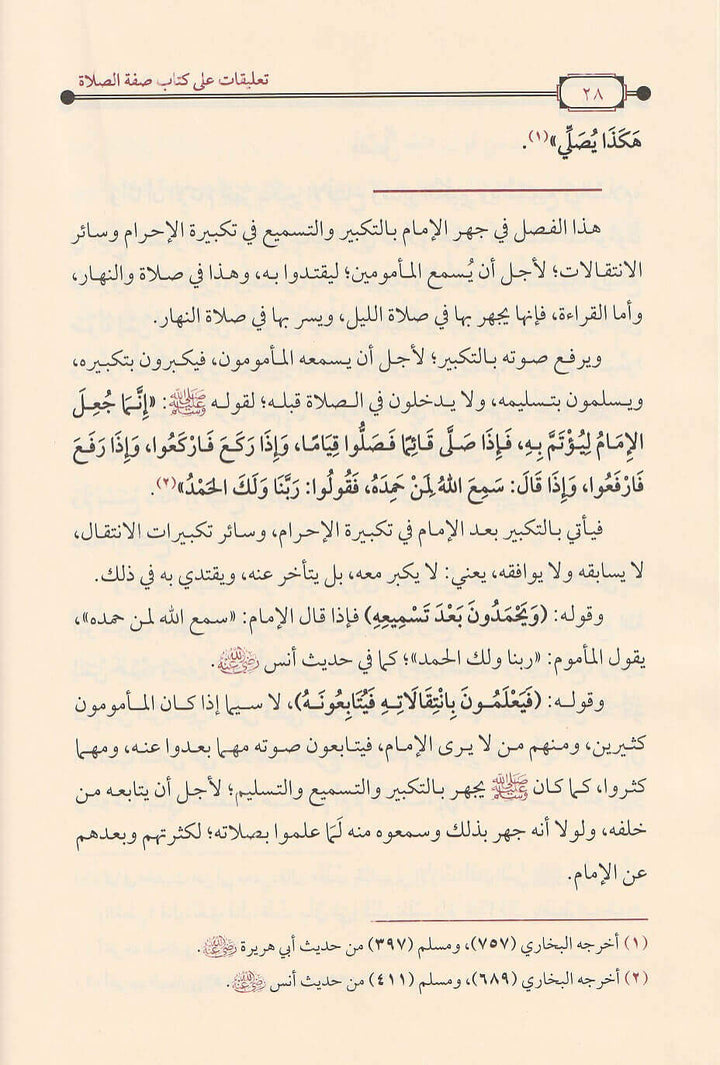 تعليقات على كتاب صفة الصلاة
٢٨
هَكَذَا يُصَلِّي»(١).
هذا الفصل في جهر الإمام بالتكبير والتسميع في تكبيرة الإحرام وسائر
الانتقالات؛ لأجل أن يُسمع المأمومين؛ ليقتدوا به، وهذا في صلاة والنهار،
وأما القراءة، فإنها يجهر بها في صلاة الليل، ويسر بها في صلاة النهار.
ويرفع صوته بالتكبير؛ لأجل أن يسمعه المأمومون، فيكبرون بتكبيره،
ويسلمون بتسليمه، ولا يدخلون في الصلاة قبله؛ لقوله ﷺ: «إِنَّمَا جُعِلَ
الإِمَامُ لِيُؤْتَمَّ بِهِ، فَإِذَا صَلَّى قَائِمًا فَصَلُّوا قِيَامًا، وَإِذَا رَكَعَ فَارْكَعُوا، وَإِذَا رَفَعَ
فَارْفَعُوا، وَإِذَا قَالَ: سَمِعَ اللهُ لِمَنْ حَمِدَهُ، فَقُولُوا: رَبَّنَا وَلَكَ الحَمْدُ»(٢).
فيأتي بالتكبير بعد الإمام في تكبيرة الإحرام، وسائر تكبيرات الانتقال،
لا يسابقه ولا يوافقه، يعني: لا يكبر معه، بل يتأخر عنه، ويقتدي به في ذلك.
وقوله: (وَيَحْمَدُونَ بَعْدَ تَسْمِيعِهِ) فإذا قال الإمام: «سمع الله لمن حمده»،
يقول المأموم: «ربنا ولك الحمد»؛ كما في حديث أنس رضي الله عنه.
وقوله: (فَيَعْلَمُونَ بِانْتِقَالَاتِهِ فَيُتَابِعُونَهُ)، لا سيما إذا كان المأمومون
كثيرين، ومنهم من لا يرى الإمام، فيتابعون صوته مهما بعدوا عنه، ومهما
كثروا، كما كان ﷺ يجهر بالتكبير والتسميع والتسليم؛ لأجل أن يتابعه من
خلفه، ولولا أنه جهر بذلك وسمعوه منه لَمَا علموا بصلاته؛ لكثرتهم وبعدهم
عن الإمام.
(١) أخرجه البخاري (٧٥٧)، ومسلم (٣٩٧) من حديث أبي هريرة رضي الله عنه.
(٢) أخرجه البخاري (٦٨٩)، ومسلم (٤١١) من حديث أنس رضي الله عنه.